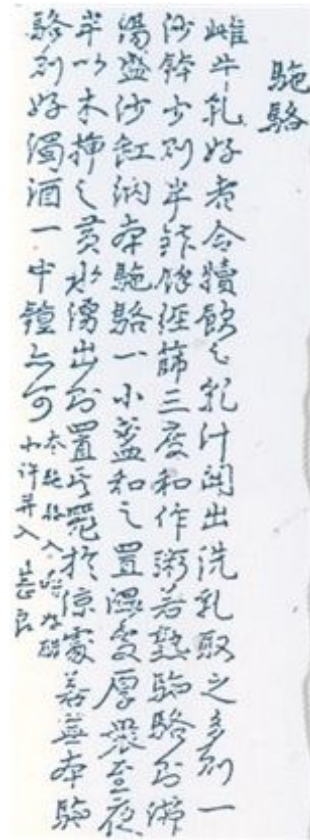 駞駱
雌牛乳好者令犢飮之乳汁開出洗乳取之多則一
沙鉢少則半鉢餘經篩三度和作粥若熟駞駱則沸
湯盛沙缸納本駞駱一小盞和之置溫處厚裹至夜
半以木揷之黃水湧出則置其器於凉處若無本駞
駱則好濁酒一中鍾亦可
本駞駱入時好醋
小許并入甚良